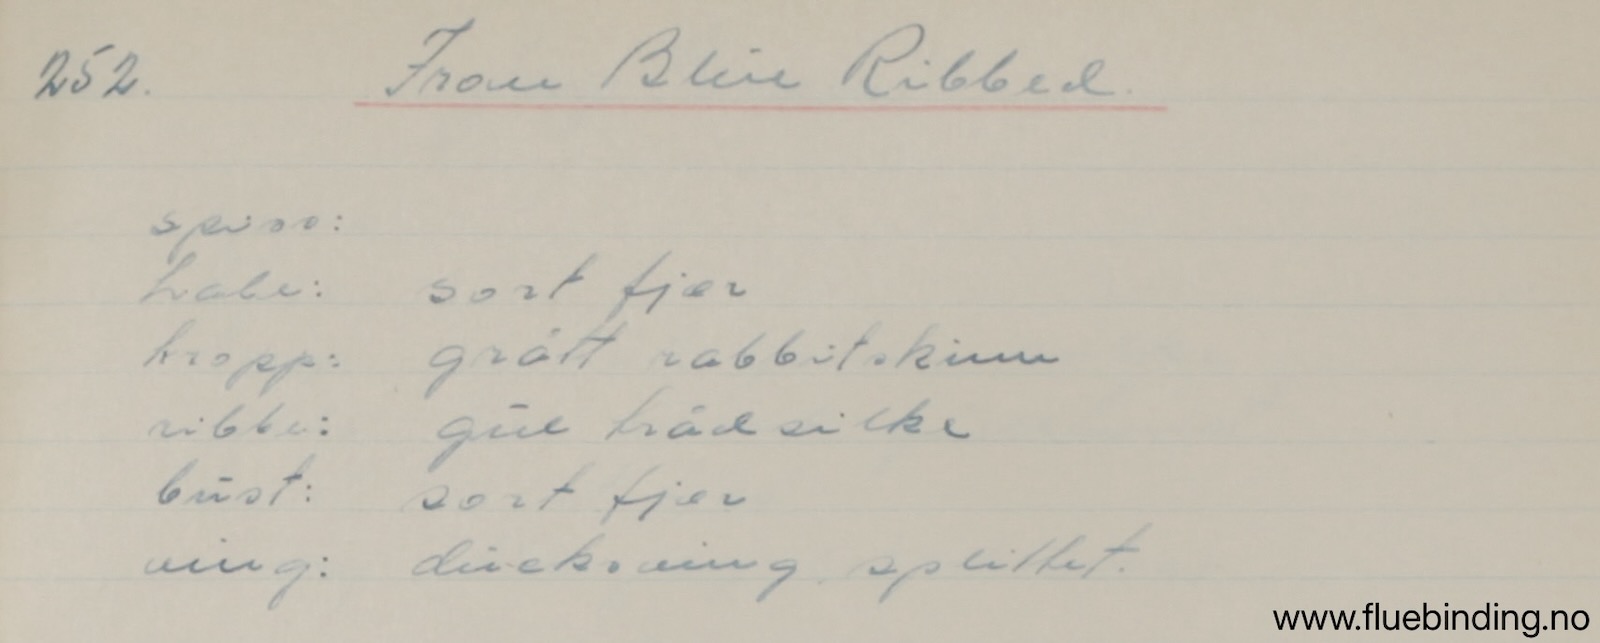 252. Iron Blue Ribbed.
spiss:
hale: sort fjær
kropp: grått rabbitskinn
ribbe: gul trådsilke
bust: sort fjær
ving: duckwing splittet.
www.fluebinding.no